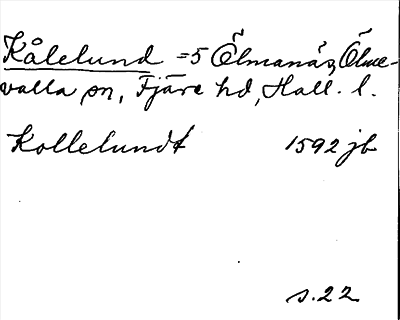 Kålelund =5 Ölmanäs, Ölme-
valla sn, Fjäre hd, Hall. l.
Kollelundt 1592 jb
s. 22